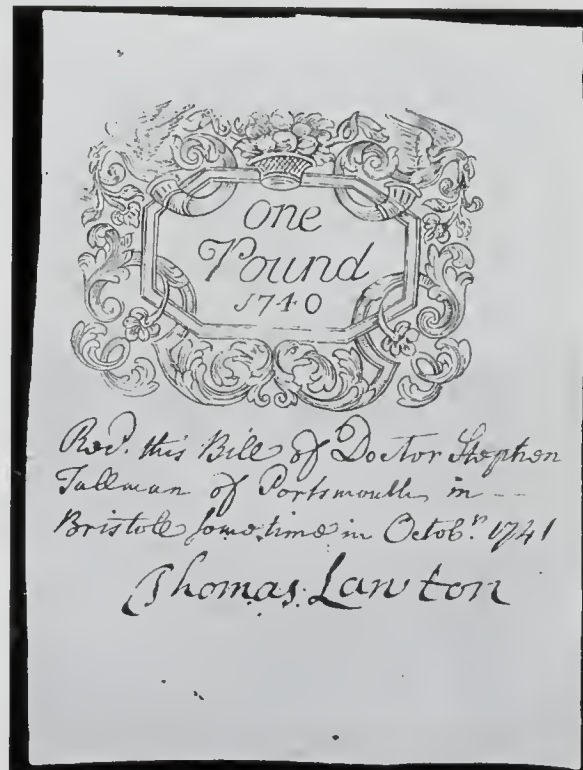 One
Pound
1740
Recd. this Bill of Doctor Stephen
Tallman of Portsmouth in --
Bristoll some time in Octobr. 1741
Thomas Lawton